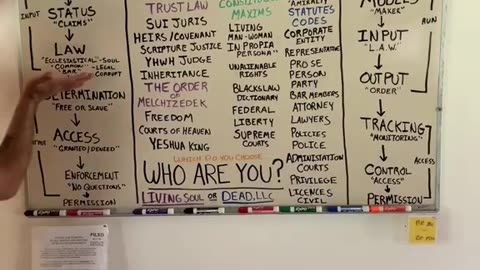 INPUT
STATUS
"CLAIMS"
LAW
"ECCLESIASTICAL" -SOUL
"COMMON" -LEGAL
"BAR" -CORRUPT
DETERMINATION
"FREE OR SLAVE"
ACCESS
"GRANTED/DENIED"
ENFORCEMENT
"NO QUESTIONS"
PERMISSION
TRUST LAW
SUI JURIS
HEIRS/COVENANT
SCRIPTURE JUSTICE
YHWH JUDGE
INHERITANCE
THE ORDER
OF
MELCHIZEDEK
FREEDOM
COURTS OF HEAVEN
YESHUA KING
MAXIMS
LIVING
MAN-WOMAN
IN PROPIA
PERSONA"
UNALIENABLE
RIGHTS
BLACKSLAW
DICTIONARY
FEDERAL
LIBERTY
SUPREME
COURTS
STATUTES
CODES
CORPORATE
ENTITY
REPRESENTATIVE
PRO SE
PERSON
PARTY
BAR MEMBERS
ATTORNEY
LAWYERS
POLICIES
POLICE
ADMINISTRATION
COURTS
PRIVILEGE
LICENCES
CIVIL
WHICH DO YOU CHOOSE
WHO ARE YOU?
LIVING SOUL OR DEAD.LLC
"MAKER"
RUN
INPUT
"L.A.W."
OUTPUT
"ORDER"
TRACKING
"MONITORING"
ACCESS
CONTROL
"ACCESS"
PERMISSION
EXPO
FILED